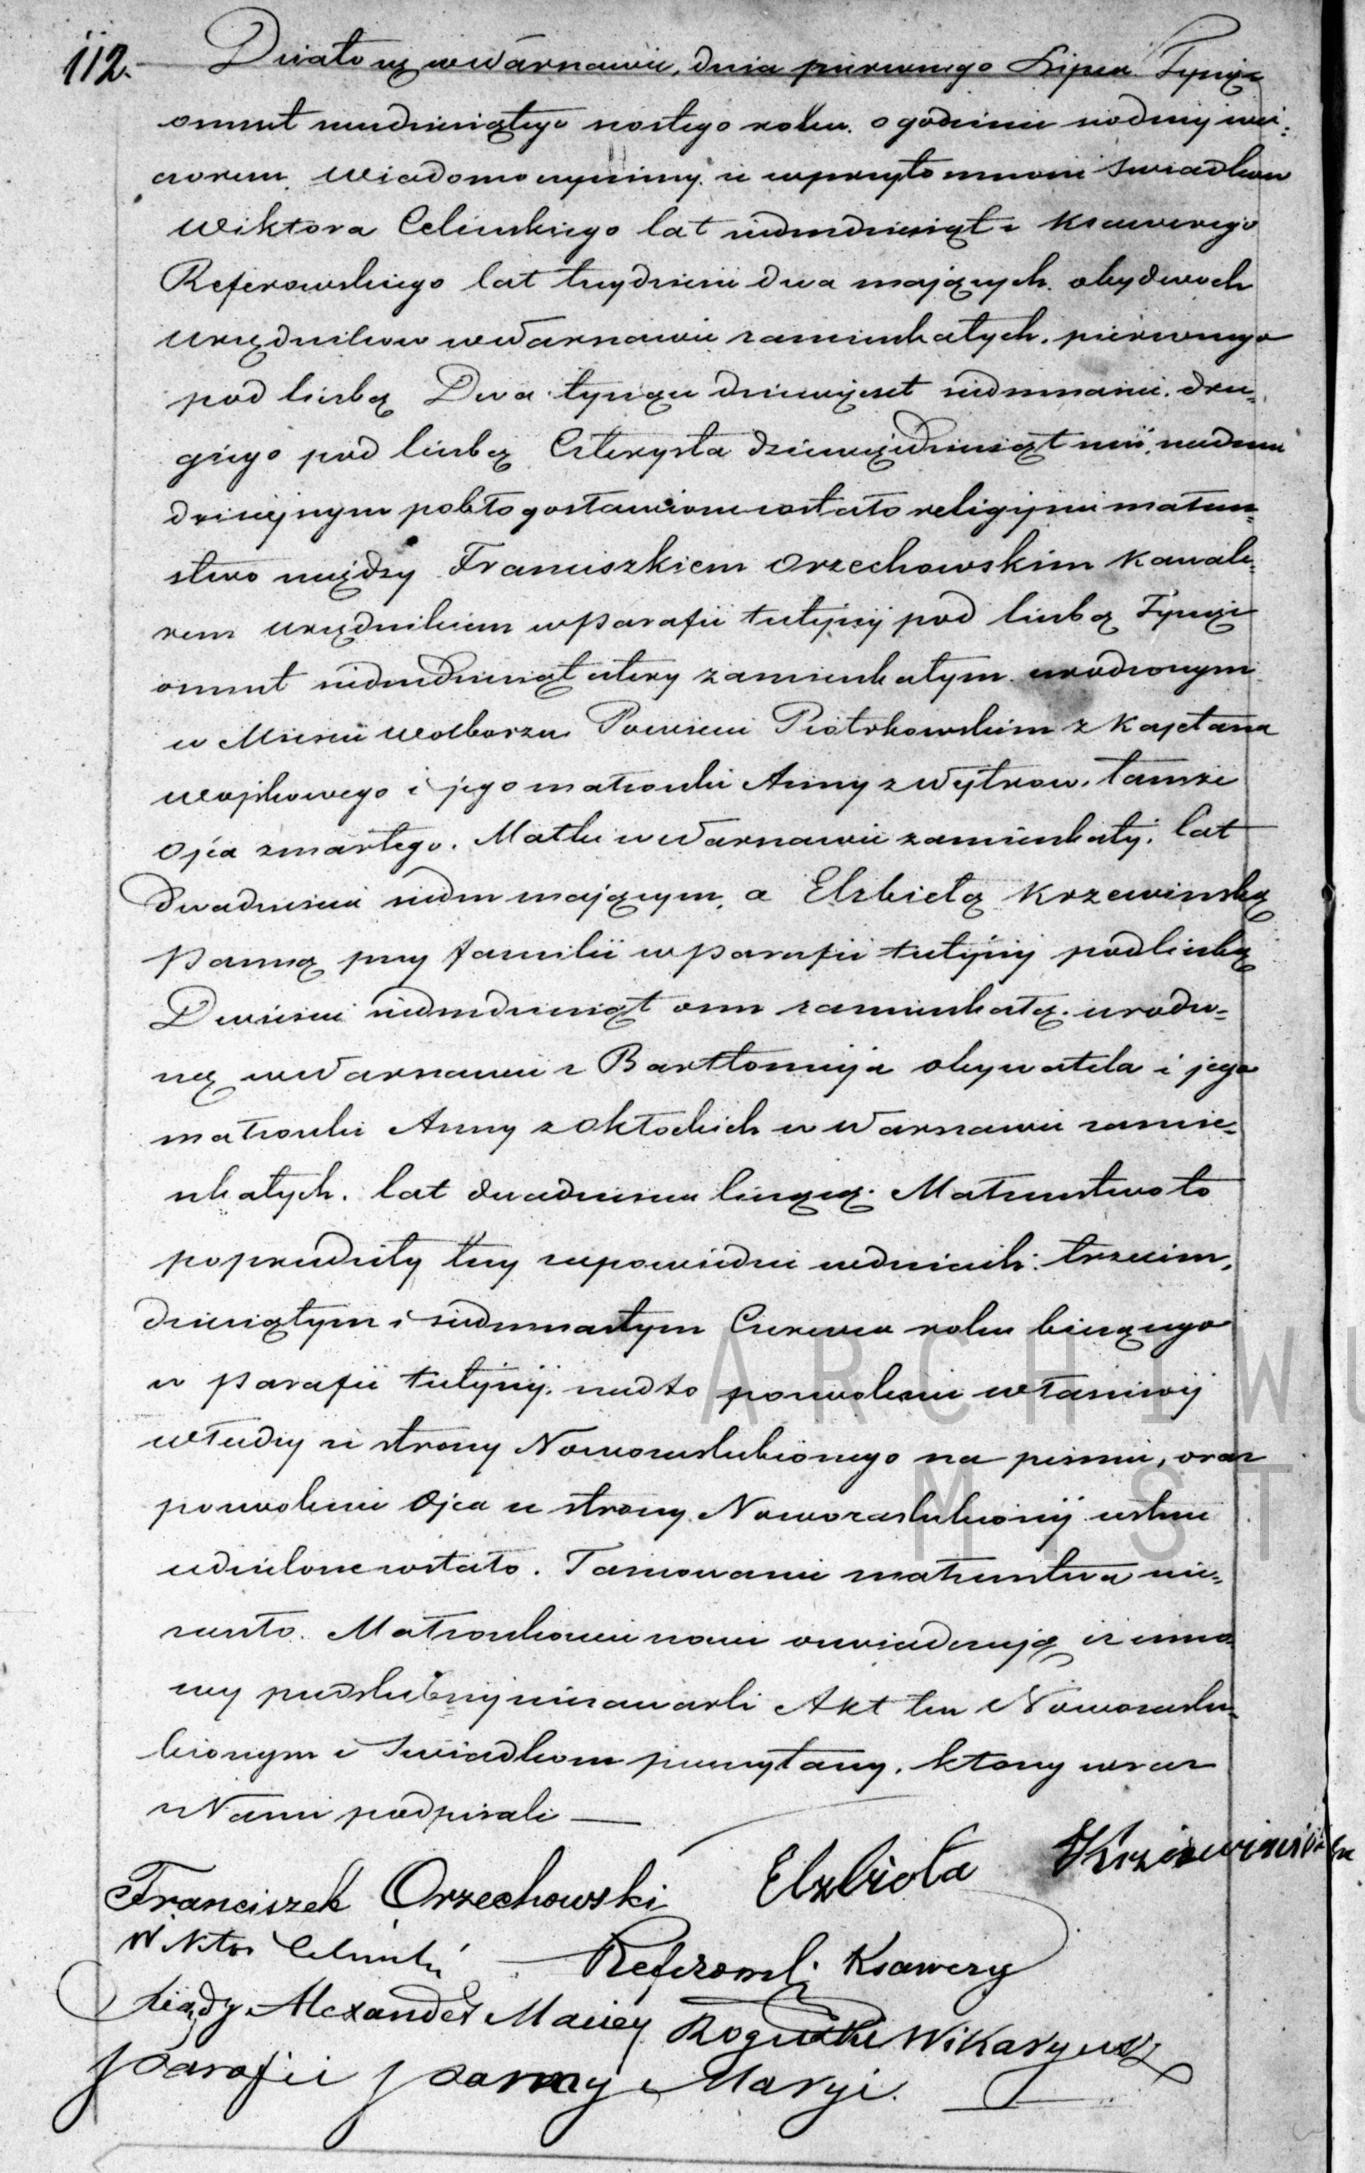 112. Działo się w Warszawie, dnia pierwszego Lipca Tysiąc
ośmset sześćdziesiątego szóstego roku. o godzinie siódmej wie=
czorem. Wiadomo czynimy, iż w przytomności Swiadków
Wiktora Celińskiego lat siedmdziesiąt i Ksawerego
Referowskiego lat trzydzieści dwa mających. obydwóch
Urzędników w Warszawie zamieszkałych. pierwszego
pod liczbą Dwa tysiące dziewięćset siedmnaście. dru=
giego pod liczbą Czterysta dziewięćdziesiąt sześć, na dniu
dzisiejszym pobłogosławione zostało religijnie małżeń=
stwo między Franciszkiem Orzechowskim Kawale=
rem urzędnikiem w Parafii tutejszej pod liczbą Tysiąc
ośmset siedmdziesiąt cztery zamieszkałym. urodzonym
w Mieście Wolborzu Powiecie Piotrkowskim z Kajetana
wojskowego i jego małżonki Anny z Wętrow. tamże
Ojca zmarłego. Matki w Warszawie zamieszkałej. lat
Dwadzieścia siedm mającym, a Elżbietą Krzewinską
Panną przy familii w Parafii tutejszej pod liczbą
Dwieście siedmdziesiąt ośm zamieszkałą. urodzo=
ną w Warszawie z Bartłomieja obywatela i jego
małżonki Anny z Okłockich w Warszawie zamie=
szkałych. lat dwadzieścia liczącą. Małżeństwo to
poprzedziły trzy zapowiedzi w dniach: trzecim,
dziesiątym i siedmnastym Czerwca roku bieżącego
w Parafii tutejszej. nadto pozwolenie właściwej
władzy ze strony Nowozaslubionego na piśmie, oraz
pozwolenie Ojca ze strony Nowozaslubionej ustnie
udzielone zostało. Tamowanie małżeństwa nie=
zaszło. Małżonkowie nowi oswiadczają iż umo
wy przedslubnej niezawarli Akt ten Nowozaslu=
bionym i Swiadkom przeczytany. ktorzy wraz
z Nami podpisali —
Franciszek Orzechowski Elżbieta Krzewińska
Wiktor Celiński Referowski Ksawery
Xiądz Alexander Maciey Wikaryusz
Parafii Panny Maryi.